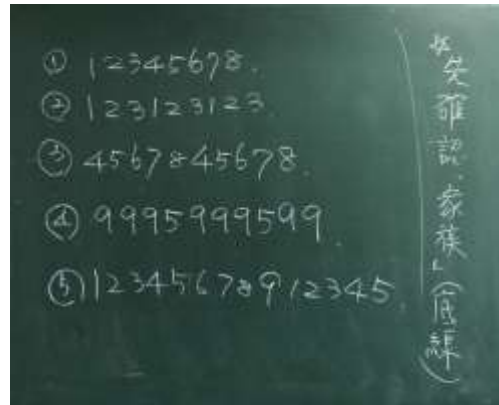 ① 12345678.
② 123123123.
③ 4567845678.
④ 9995999599.
⑤ 12345678912345.
※先確認「家族」(底線)